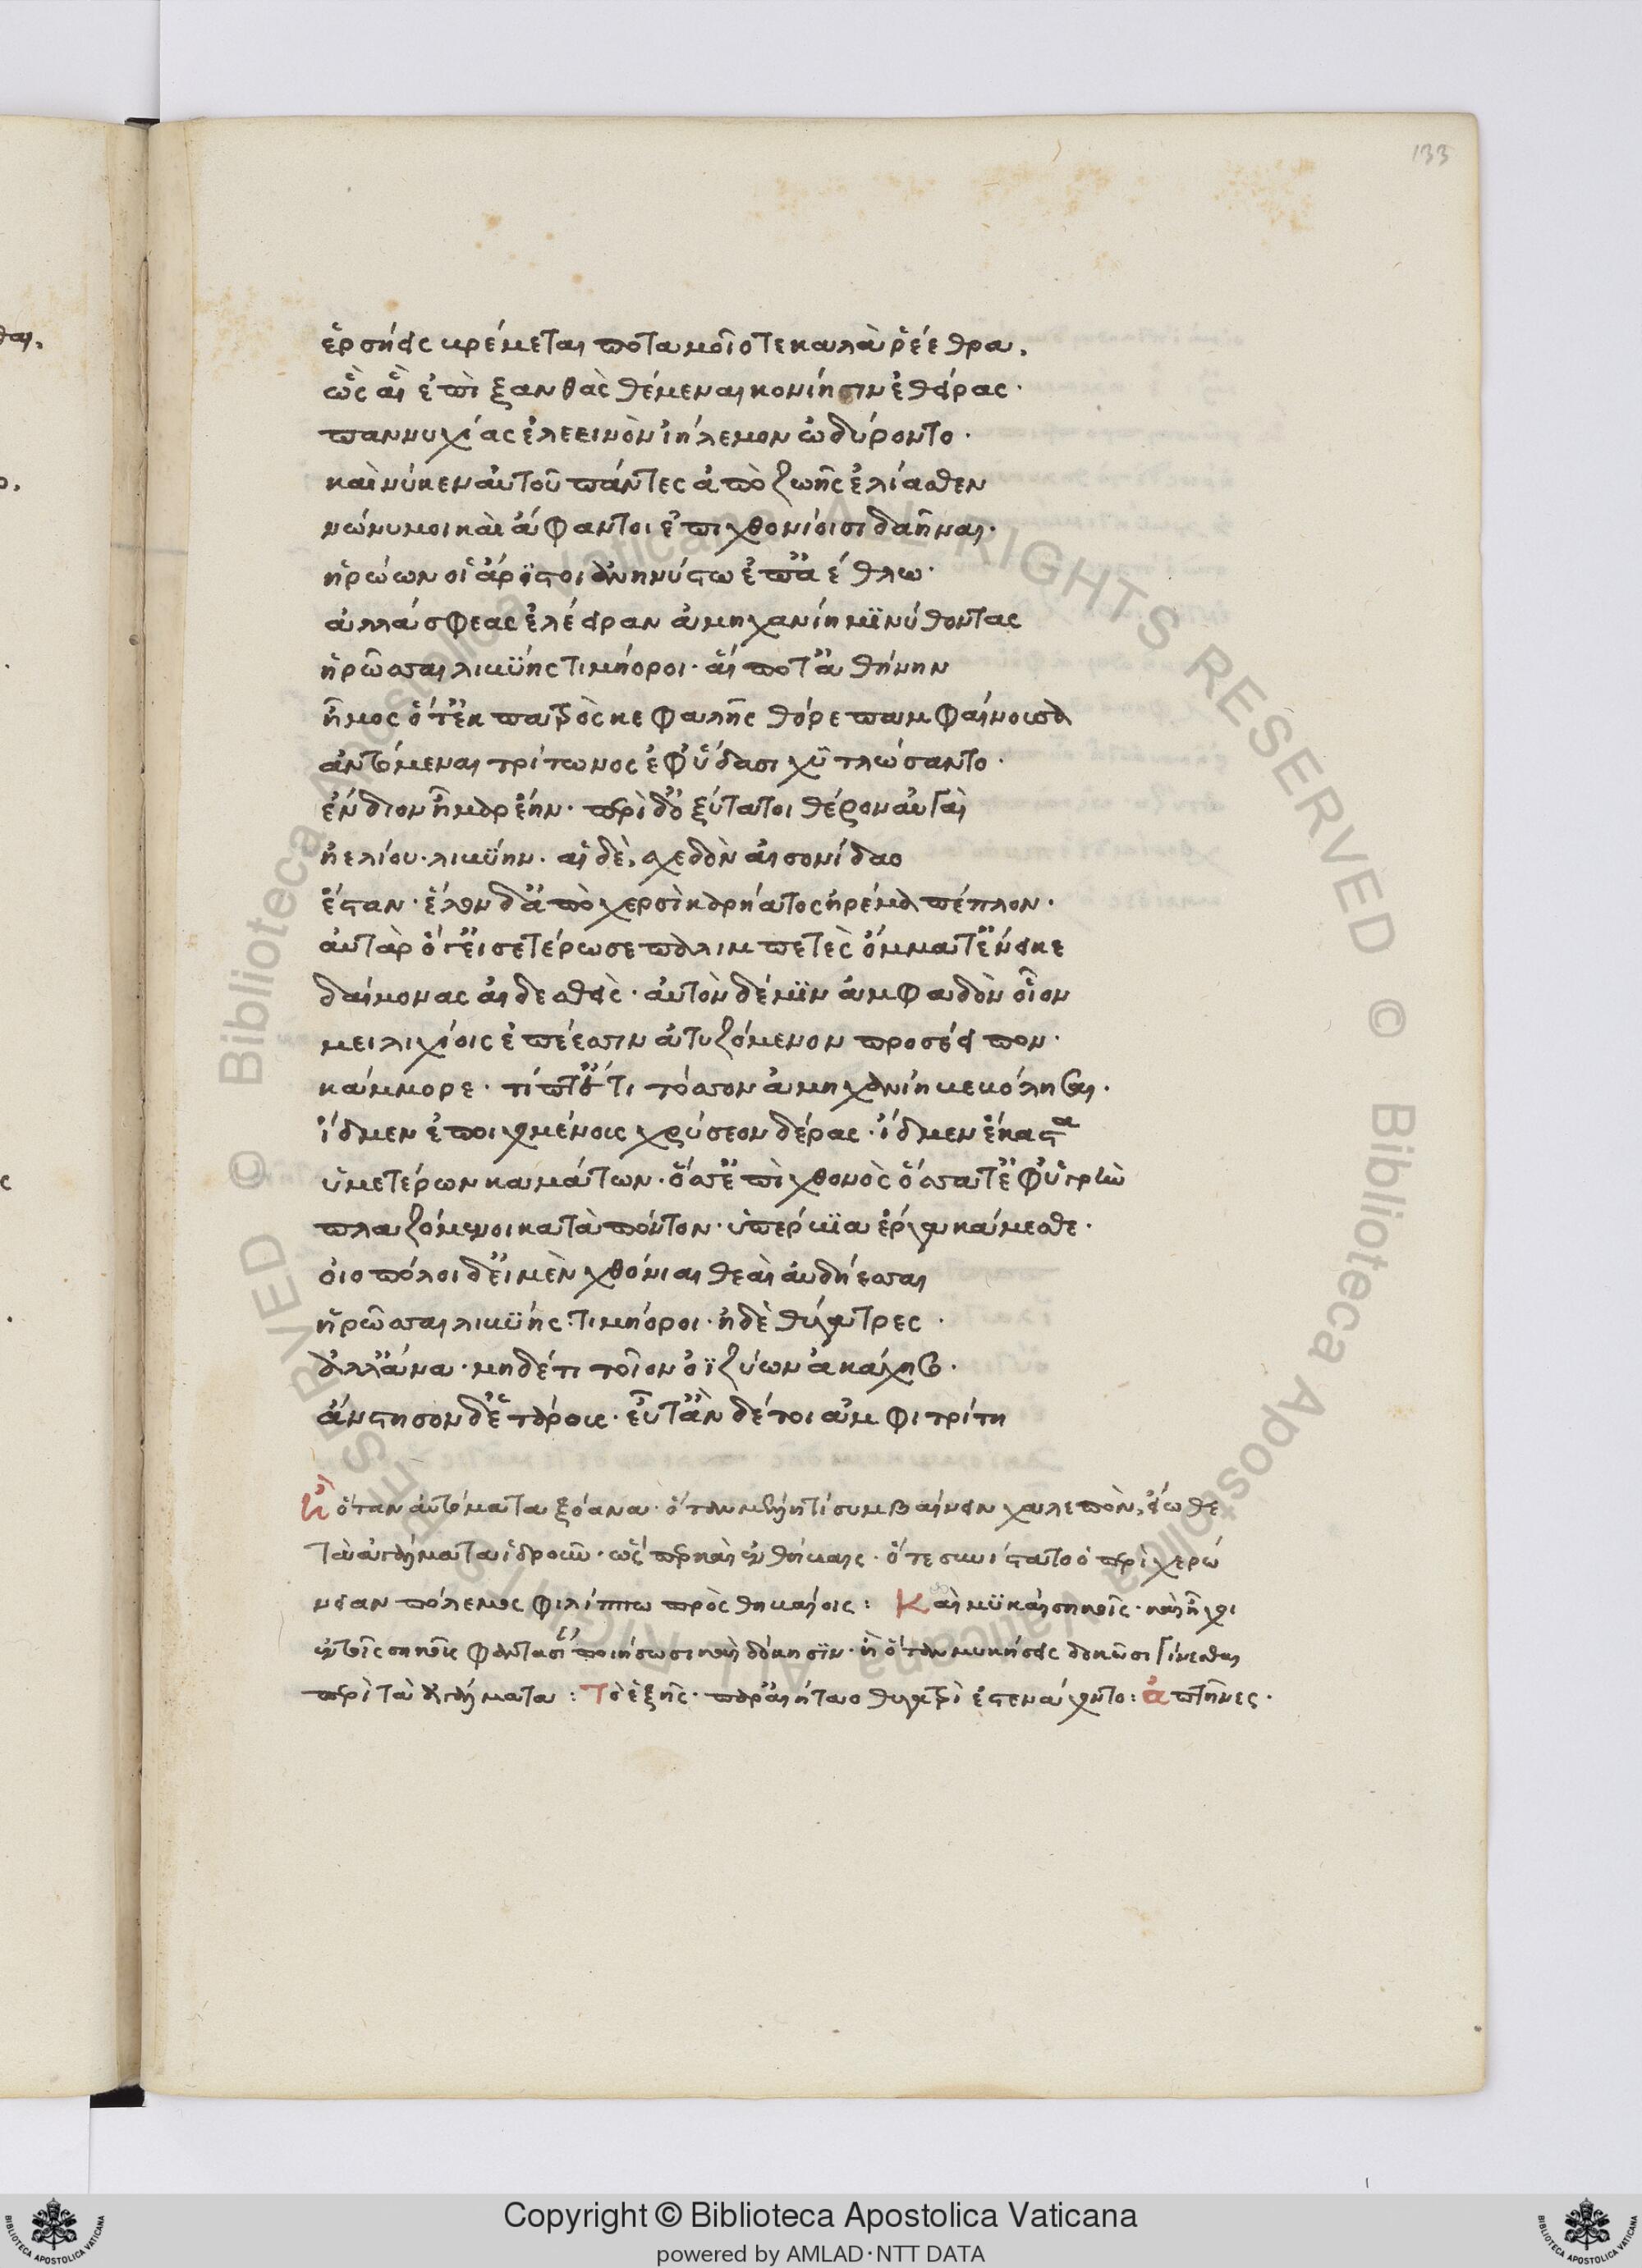 133
ἑρσήεις κρέμεται ποταμοῖό τε καλὰ ῥέεθρα,
ὣς αἳ ἐπὶ ξανθὰς θέμεναι κονίησιν ἐθείρας·
παννυχίας ἐλεεινὸν ἰήλεμον ὠδύροντο·
καὶ νύ κεν αὐτοῦ πάντες ἀπὸ ζωῆς ἐλίασθεν
νώνυμοι καὶ ἄφαντοι ἐπιχθονίοισι δαῆναι·
ἡρώων οἱ ἄριστοι ἀνηνύστω ἐπ' ἀέθλω·
ἀλλά σφεας ἐλέηραν ἀμηχανίη μινύθοντας
ἡρῶσσαι λιβύης τιμήοροι· αἵ ποτ' ἀθήνην
ἦμος ὅτ' ἐκ πατρὸς κεφαλῆς θόρε παμφαίνουσα
ἀντόμεναι τρίτωνος ἐφ' ὕδασι χυτλώσαντο·
ἔνδιον ἦμαρ ἔην· περὶ δ' ὀξύταται θέρον αὐγαὶ
ἠελίου λιβύην· αἱ δὲ, σχεδὸν αἰσονίδαο
ἔσταν· ἕλον δ' ἀπὸ χερσὶ καρήατος ἠρέμα πέπλον·
αὐτὰρ ὅ γ' εἰς ἑτέρωσε παλιμπετὲς ὄμματ' ἔνεικε
δαίμονας αἰδεσθεὶς· αὐτὸν δέ μιν ἀμφαδὸν οἶον
μειλιχίοις ἐπέεσσιν ἀτυζόμενον προσέειπον·
κάμμορε· τίπτ' ἔτι τόσσον ἀμηχανίη βεβόλησαι·
ἴδμεν ἐποιχομένους χρύσεον δέρας· ἴδμεν ἕκαστα
ὑμετέρων καμάτων· ὅσ' ἐπὶ χθονὸς ὅσσα τ' ἐφ' ὑγρὴν
πλαζόμενοι κατὰ πόντον· ὑπέρβια ἔργα κάμεσθε·
οἰοπόλοι δ' εἰμὲν χθόνιαι θεαὶ αὐδήεσσαι
ἡρῶσσαι λιβύης τιμήοροι· ἠδὲ θύγατρες·
ἀλλ' ἄνα· μηδέ τι τοῖον ὀϊζύων ἀκάχησο·
ἄνστησον δ' ἑτάρους· εὖτ' ἂν δέ τοι ἀμφιτρίτη
ἢ ὅταν αὐτόματα ξόανα· ὅταν μέλλῃ τι συμβαίνειν χαλεπὸν, εἴωθε
τὰ ἀγάλματα ἱδροῦν· ὥσπερ καὶ ἐν θήβαις· ὅτε συνίστατο ὁ περὶ χερώ
νειαν πόλεμος φιλίππω πρὸς θηβαίοις: Καὶ μυκαὶ σηκοῖς· καὶ ἦχοι
ἐν τοῖς σηκοῖς φαντασίαν ποιήσωσι καὶ δόκησιν· ἢ ὅταν μυκήσεις δοκῶσι γίνεσθαι
περὶ τὰ ἀγάλματα: Τὸ ἑξῆς· παρ' αἰήταο θυγατρὶ ἐστενάχοντο: ἀπτῆνες·
Copyright © Biblioteca Apostolica Vaticana
powered by AMLAD·NTT DATA